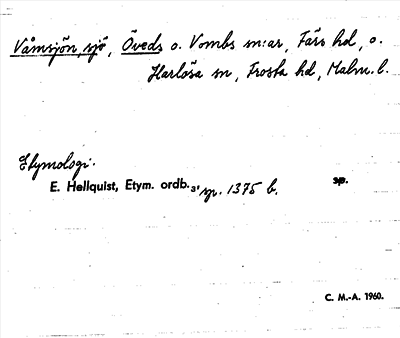 Våmsjön, sjö, Öveds o. Vombs sn:ar, Färs hd, o.
Harlösa sn, Frosta hd, Malm. l.
Etymologi.
E. Hellquist, Etym. ordb.³, sp. 1375 b. sp.
C. M.-A. 1960.